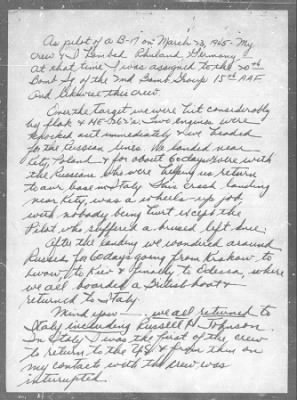 As pilot of a B-17 on March 22, 1945 - My
crew & I bombed Ruhland Germany.
At that time I was assigned to the 20th
Bomb Sq of the 2nd Bomb Group 15th AAF
And likewise this crew.
Over the target we were hit considerably
by flak & ME-262's. Two engines were
knocked out immediately & we headed
for the Russian lines. We landed near
Kety, Poland & for about 60 days were with
the Russians who were helping us return
to our base in Italy. This crash landing
near Kety, was a wheels-up job
with nobody being hurt except the
Pilot who suffered a bruised left knee.
After the landing we wondered around
Russia for 60 days going from Krakow to
Lwow, to Kiev & finally to Odessa, where
we all boarded a British boat &
returned to Italy.
Mind you — we all returned to
Italy including Russell H. Johnson.
In Italy I was the first of the crew
to return to the US & from then on
my contacts with the crew was
interrupted.